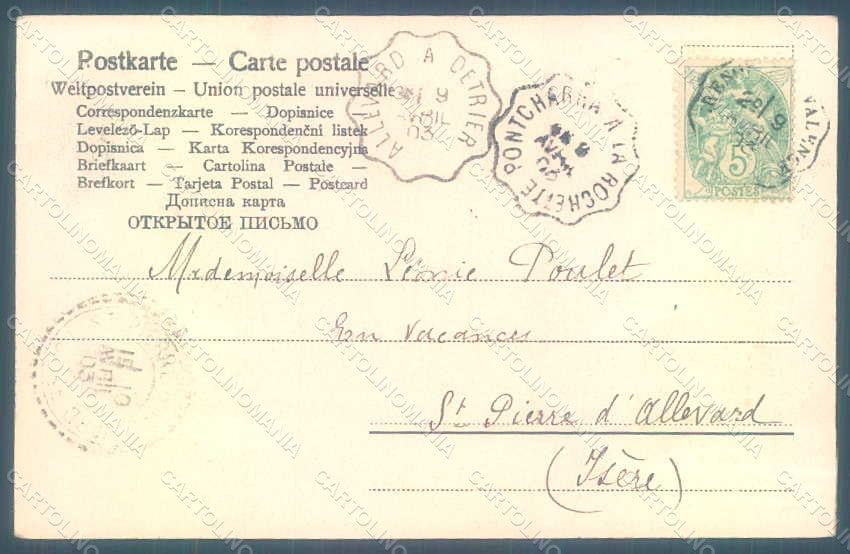 Postkarte — Carte postale
Weltpostverein – Union postale universelle
Correspondenzkarte — Dopisnice
Levelező-Lap — Korespondenční listek
Dopisnica — Karta Korespondencyjna
Briefkaart — Cartolina Postale —
Brefkort — Tarjeta Postal — Postcard
Дописна карта
ОТКРЫТОЕ ПИСЬМО
ALLEVARD A DETRIER
9
AVRIL
03
PONTCHARRA A LA ROCHETTE
AVRIL
03
2º 9
AVRIL
5
POSTES
Mademoiselle Léonie Poulet
En vacances
St Pierre d'Allevard
(Isère)
10
AVRIL
03
CARTOLINOMANIA